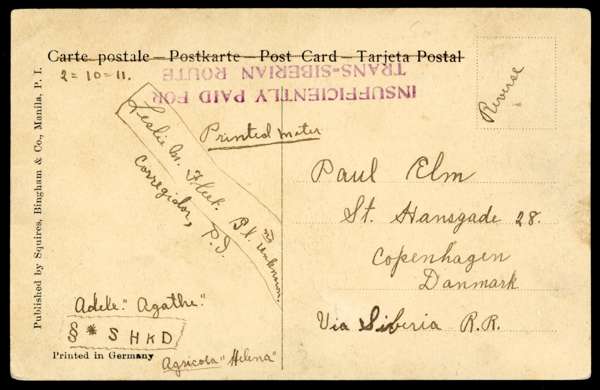 Carte postale — Postkarte — Post Card — Tarjeta Postal
2=10=11.
INSUFFICIENTLY PAID FOR
TRANS-SIBERIAN ROUTE
Reverse
Printed mater
Leslie M. Fleet. Bl.
Corregidor, P.I.
Paul Elm
St. Hansgade 28.
Copenhagen
Danmark
Via Siberia R.R.
Adele." Agathe."
§ * S H K D
Agricola "Helena"
Printed in Germany
Published by Squires, Bingham & Co., Manila, P. I.